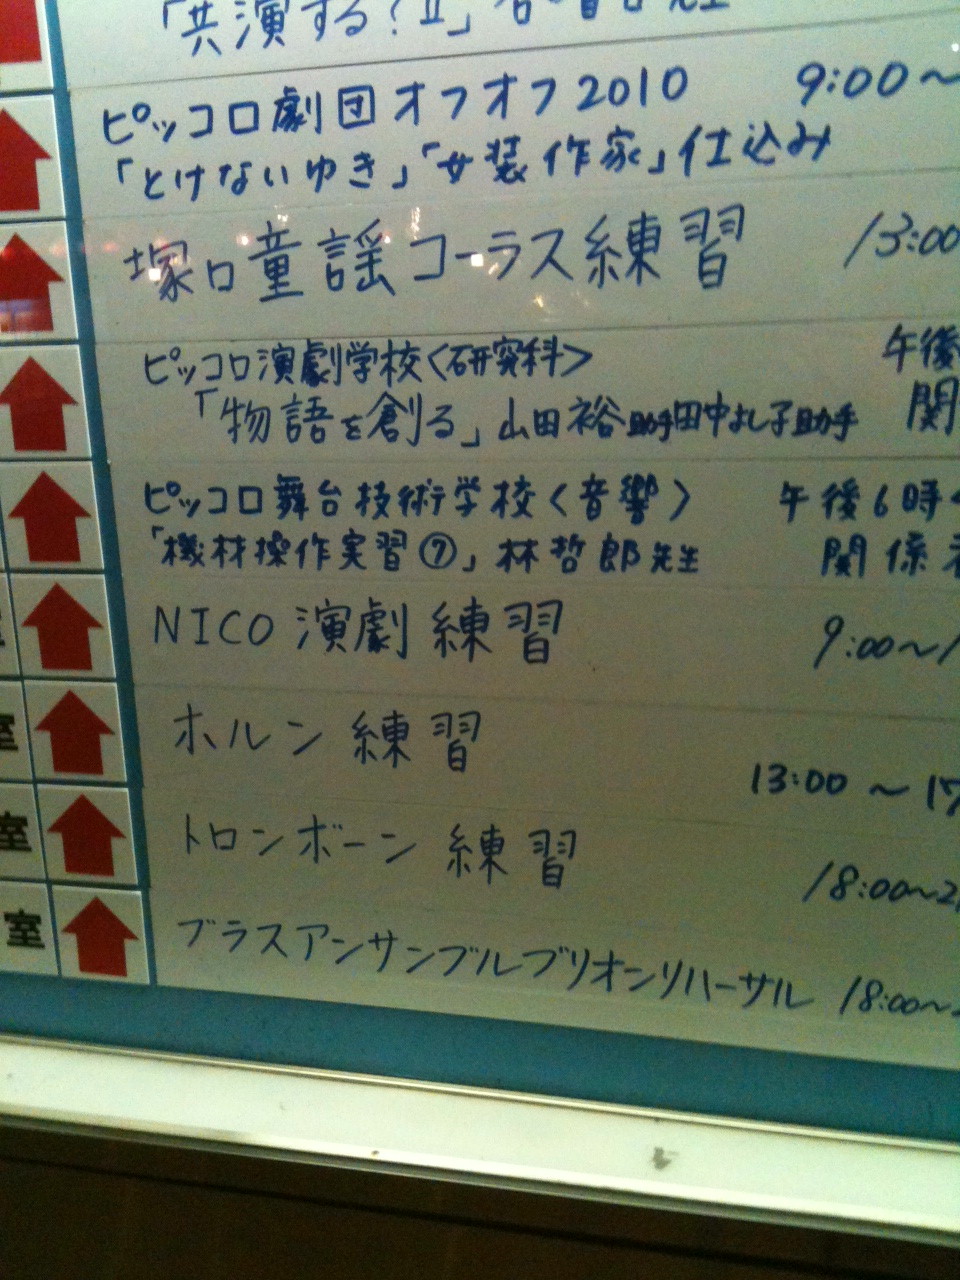 「共演する?Ⅱ」
ピッコロ劇団オフオフ2010 9:00〜
「とけないゆき」「女装作家」仕込み
塚口童謡コーラス練習 13:00
ピッコロ演劇学校〈研究科〉 午後
「物語を創る」山田裕助手田中よし子助手 関
ピッコロ舞台技術学校〈音響〉 午後6時
「機材操作実習⑦」林哲郎先生 関係
NICO 演劇 練習 9:00〜1
ホルン 練習
室 13:00 〜 17
トロンボーン 練習
室 18:00〜2
ブラスアンサンブルブリオンリハーサル 18:00〜
室